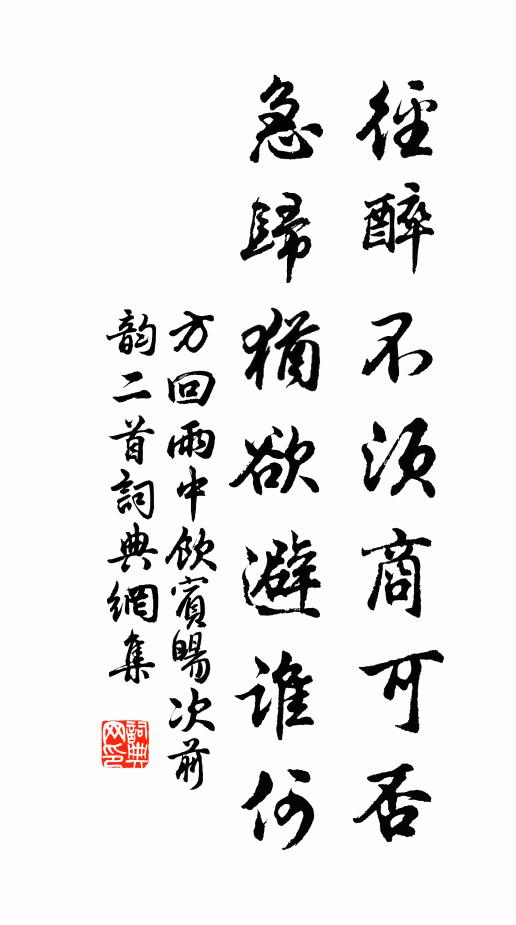 徑醉不須商可否
急歸猶欲避誰何
方回雨中飲賓暘次前
韵二首詞典網集
詞典
网印